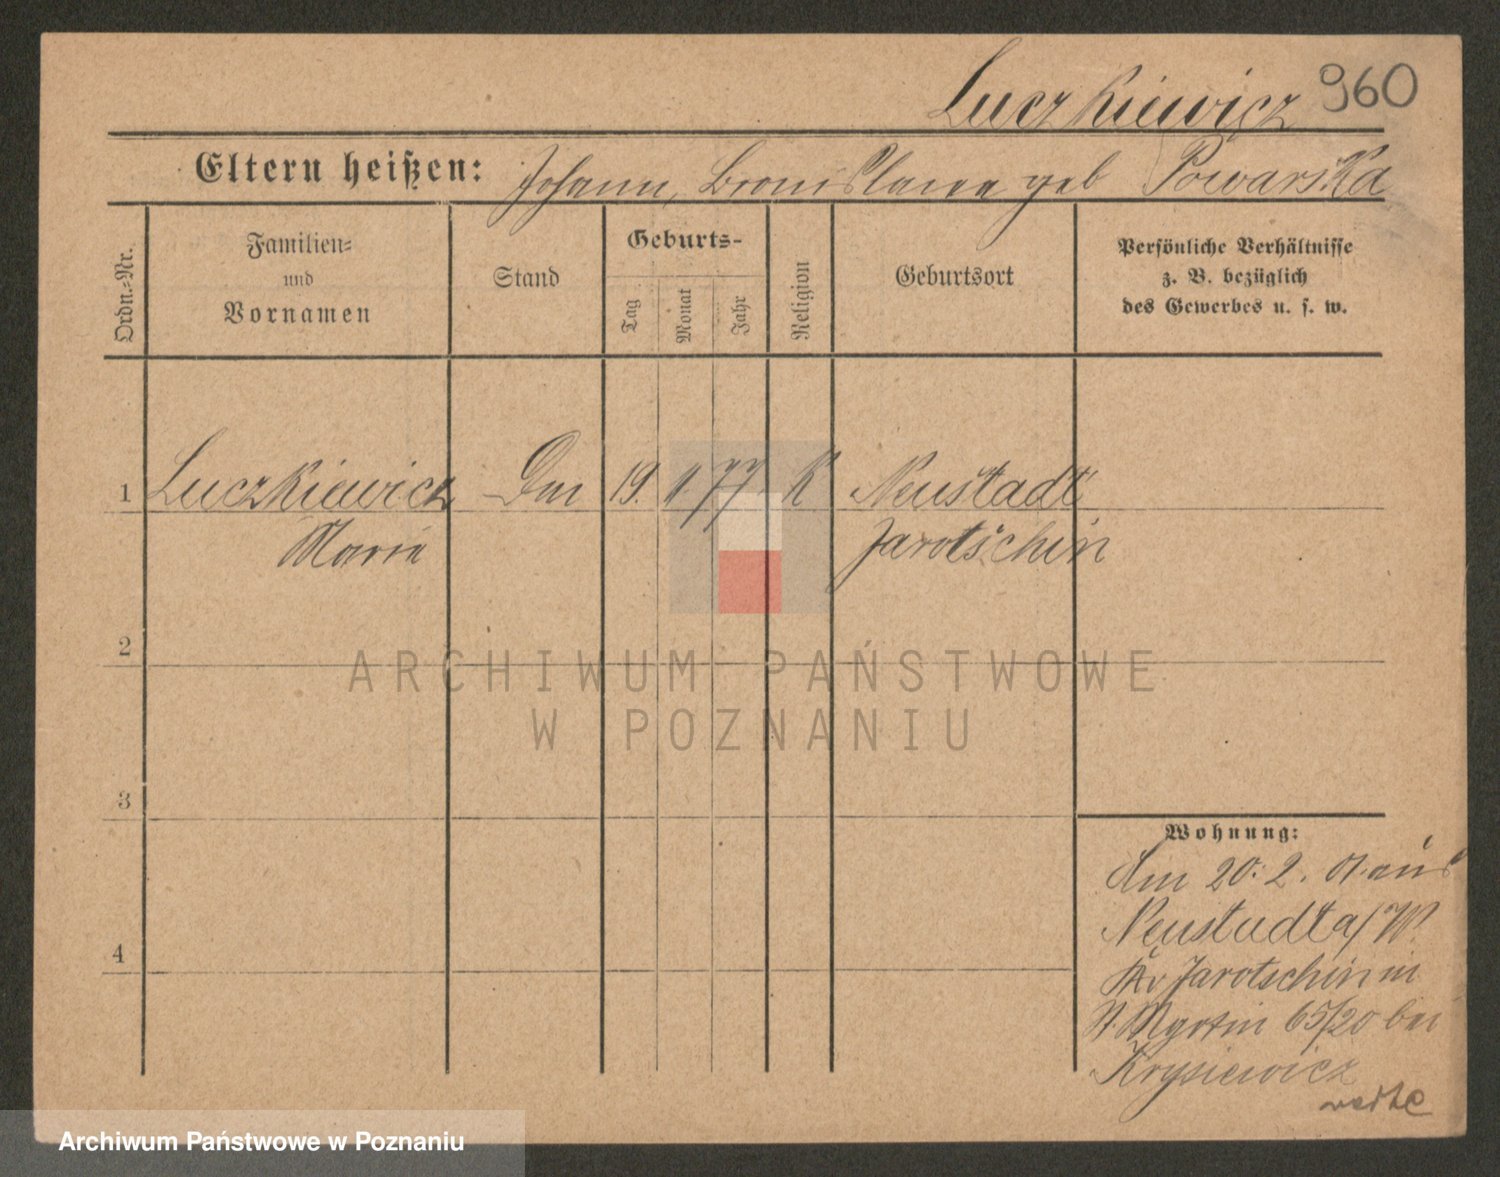 Luczkiewicz 960
Eltern heißen: Johann, Bronislawa geb Powarska
Ordn.-Nr.
Familien-
und
Vornamen
Stand
Geburts-
Tag
Monat
Jahr
Religion
Geburtsort
Persönliche Verhältnisse
z. B. bezüglich
des Gewerbes u. s. w.
1 Luczkiewicz 19. 11. 77 K Neustadt
Marie Jarotschin
2
ARCHIWUM PAŃSTWOWE
W POZNANIU
3
Wohnung:
Am 20. 2. 01. aus
Neustadt a/W.
Jarotschin in
St. Martin 65/20 bei
Krysiewicz
4
Archiwum Państwowe w Poznaniu